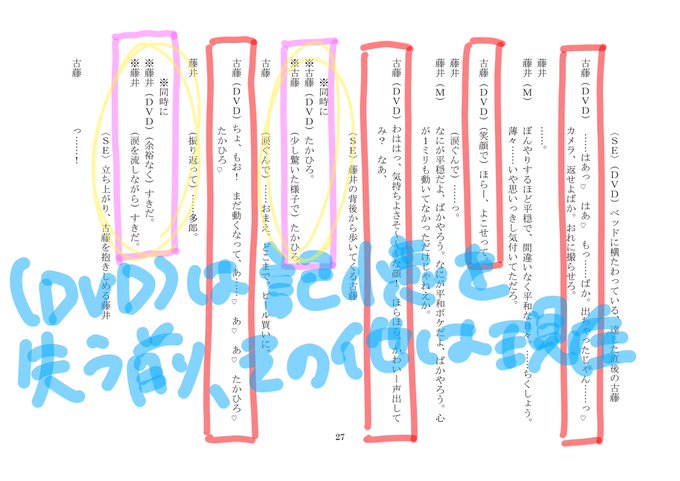 (SE)(DVD)ベッドに横たわっている、達した直後の古藤
古藤(DVD) ……はあっ♡ はあ♡ もっ……ばか。出ちゃったじゃん……っ♡
カメラ、返せよばか。おれに撮らせろ。
藤井 ……。
藤井(M) ぼんやりするほど平穏で、間違いなく平和な日々……ちくしょう。
薄々……いや思いっきし気付いてただろ。
古藤(DVD) (笑顔で)ほらー、よこせって
藤井 (涙ぐんで)……っ。
藤井(M) なにが平穏だよ、ばかやろう。なにが平和ボケだよ、ばかやろう。心
が1ミリも動いてなかっただけじゃねえか。
古藤(DVD) わははっ、気持ちよさそーな顔!ほらほら、かわいー声出して
み? なあ、
(SE)藤井の背後から歩いてくる古藤
※同時に
※古藤(DVD)たかひろ。
※古藤 (少し驚いた様子で)たかひろ。
古藤 (涙ぐんで)……おまえ、どこまで、ビール買いに。
古藤(DVD) ちょ、もお! まだ動くなって、あ……♡ あ♡ あ♡ たかひろ♡
たかひろ♡
藤井 (振り返って)……多郎。
※同時に
※藤井(DVD)(余裕なく)すきだ。
※藤井 (涙を流しながら)すきだ。
(SE)立ち上がり、古藤を抱きしめる藤井
古藤 っ……!
27
(DVD)は記憶を
失う前、その他は現在